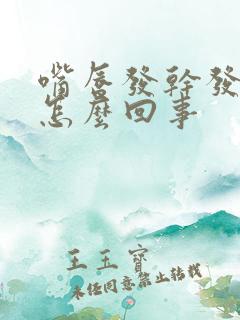 嘴唇發幹發
怎麼回事
王玉寶
未經同意禁止轉載